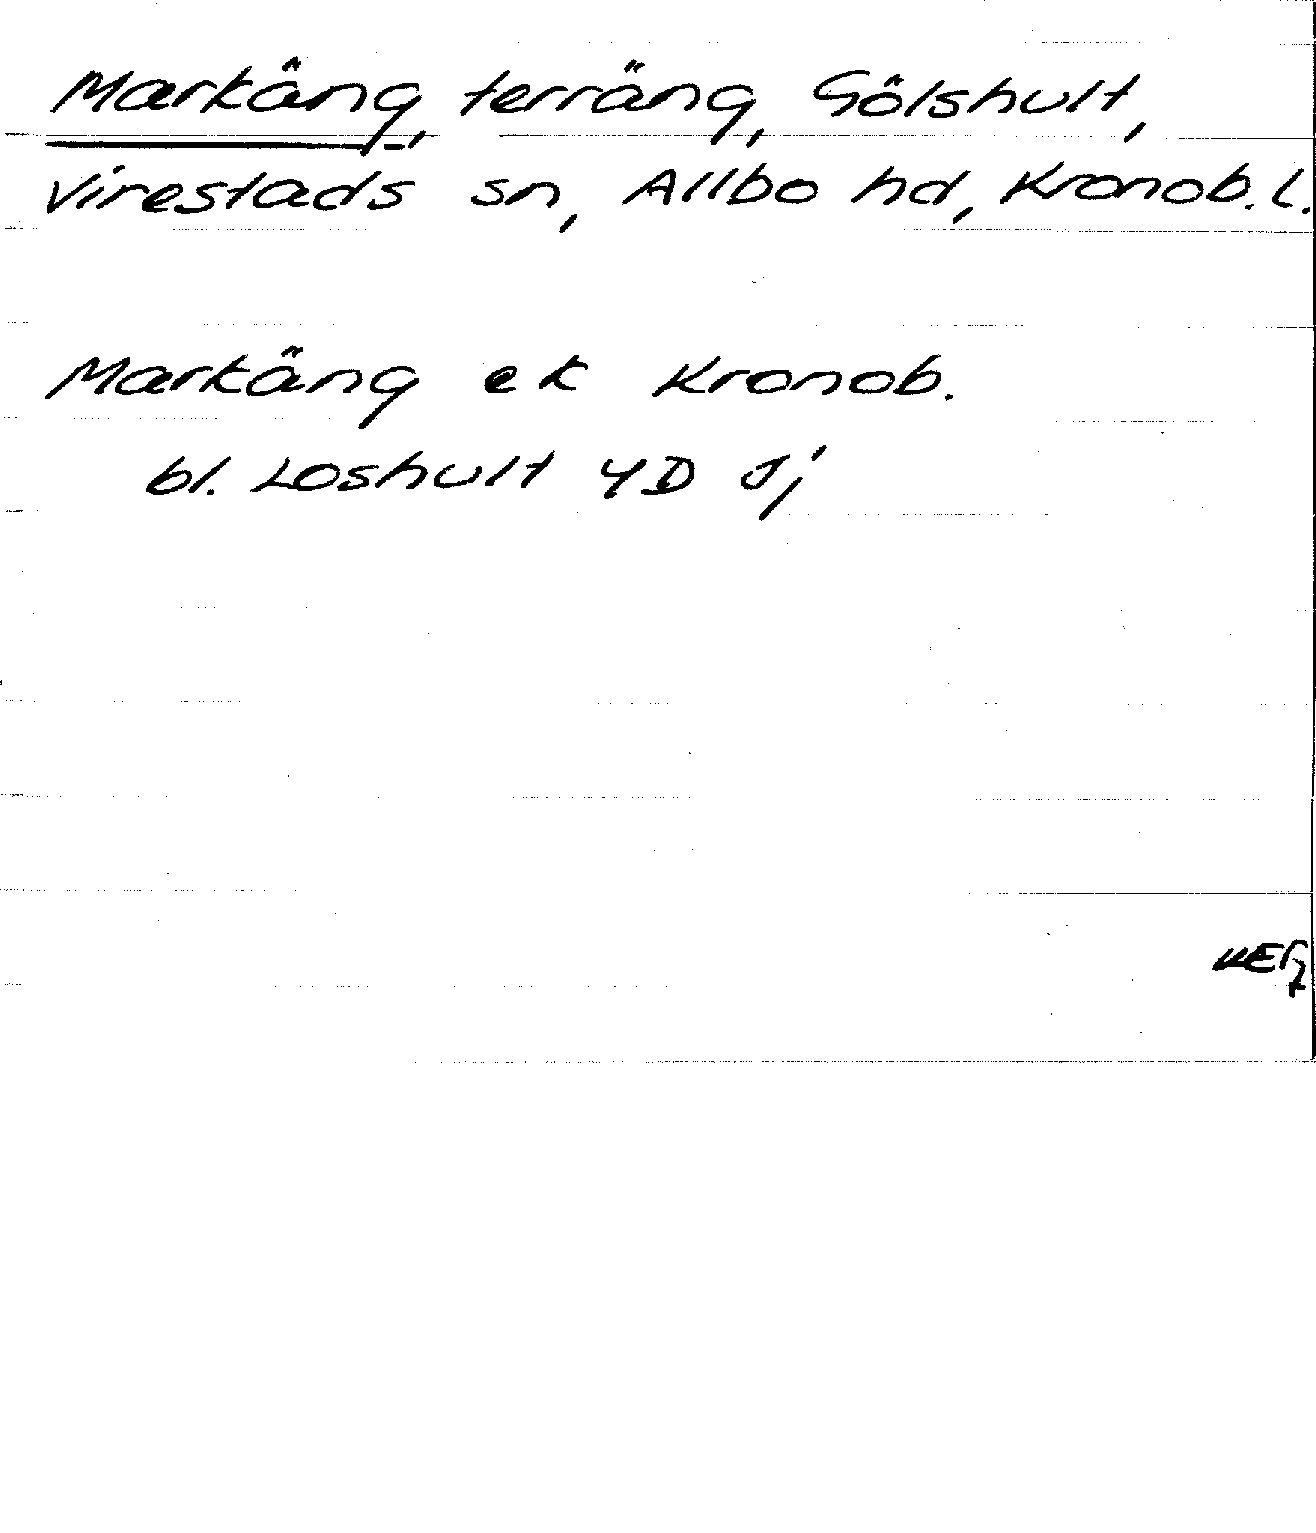 Markäng, terräng, Gölshult,
Virestads sn, Allbo hd, Kronob. l.
Markäng ek Kronob.
bl. Loshult 4D Jj